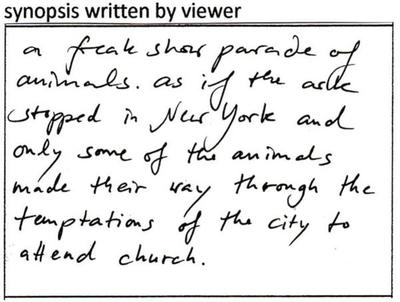 synopsis written by viewer
a freak show parade of
animals. as if the ark
stopped in New York and
only some of the animals
made their way through the
temptations of the city to
attend church.